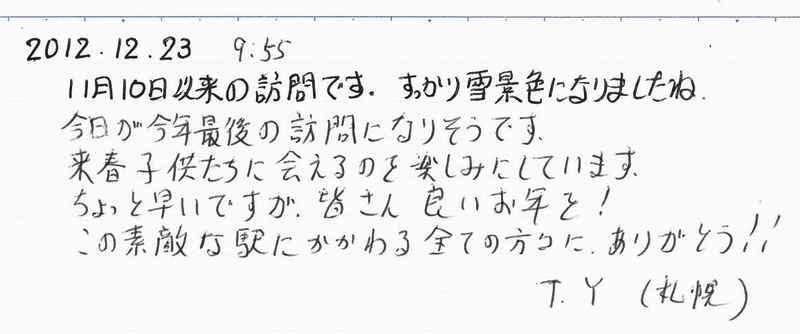 2012.12.23 9:55
11月10日以来の訪問です. すっかり雪景色になりましたね.
今日が今年最後の訪問になりそうです.
来春子供たちに会えるのを楽しみにしています.
ちょっと早いですが. 皆さん 良いお年を!
この素敵な駅にかかわる全ての方々に. ありがとう!!
T.Y (札幌)